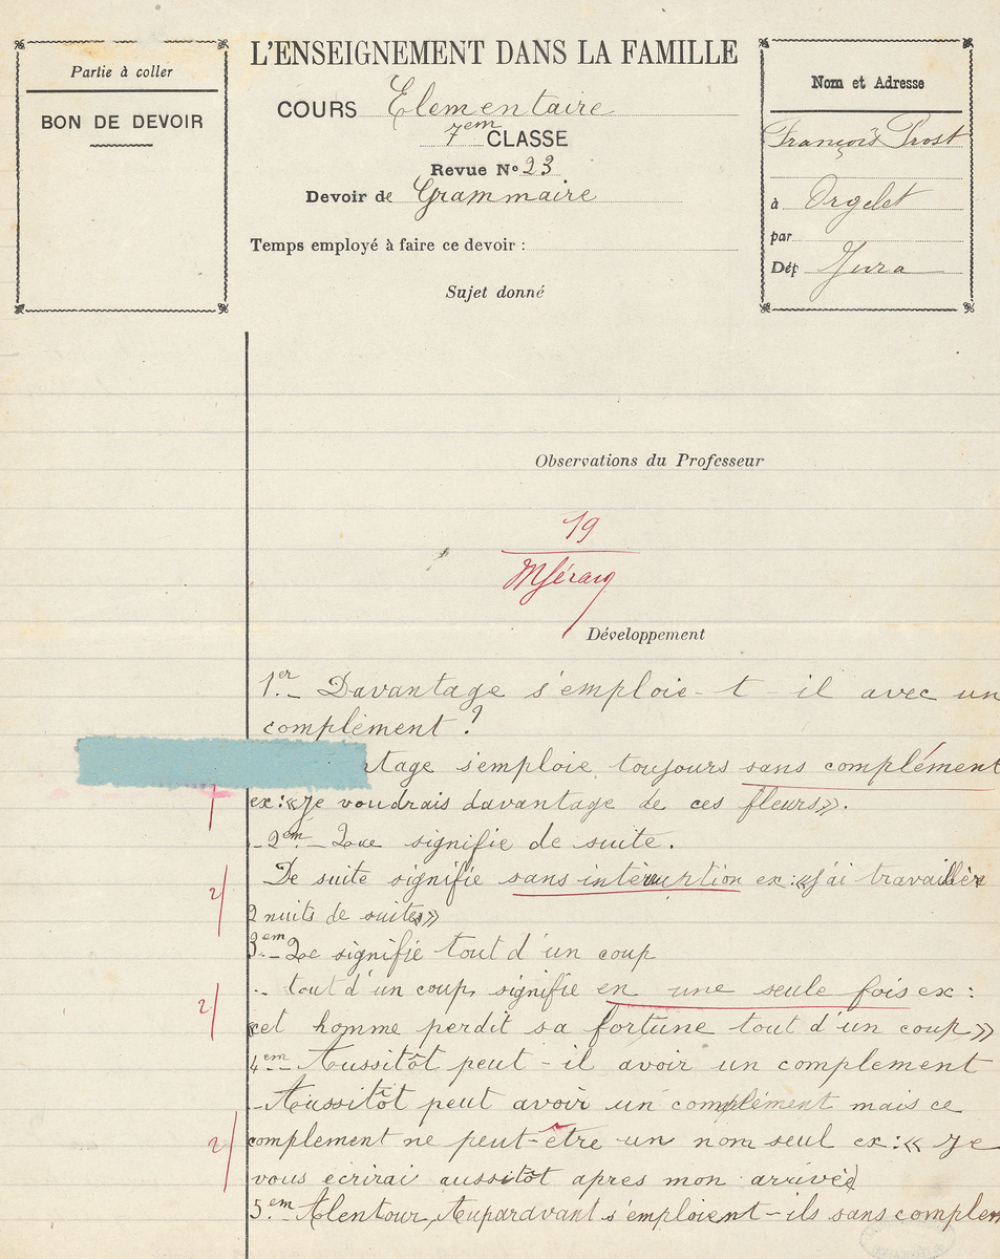 L'ENSEIGNEMENT DANS LA FAMILLE
Partie à coller
BON DE DEVOIR
COURS Elementaire
7em CLASSE
Revue No 23
Devoir de Grammaire
Temps employé à faire ce devoir :
Sujet donné
Nom et Adresse
François Prost
à Orgelet
par
Dép Jura
Observations du Professeur
19
Développement
1er - Davantage s'emploie - t - il avec un
complément ?
tage s'emploie toujours sans complément
ex:«Je voudrais davantage de ces fleurs».
- 2em - Que signifie de suite.
De suite signifie sans intéruption ex:«j'ai travaillér
2 nuits de suite»
3em - Que signifie tout d'un coup
.. tout d'un coup, signifie en une seule fois ex:
«cet homme perdit sa fortune tout d'un coup»
4em - Aussitôt peut - il avoir un complement
- Aussitôt peut avoir un complément mais ce
complement ne peut-être un nom seul ex:« Je
vous écrirai aussitôt apres mon arrivée)
5em Alentour, Auparavant s'emploient - ils sans complem
2/
2/
2/